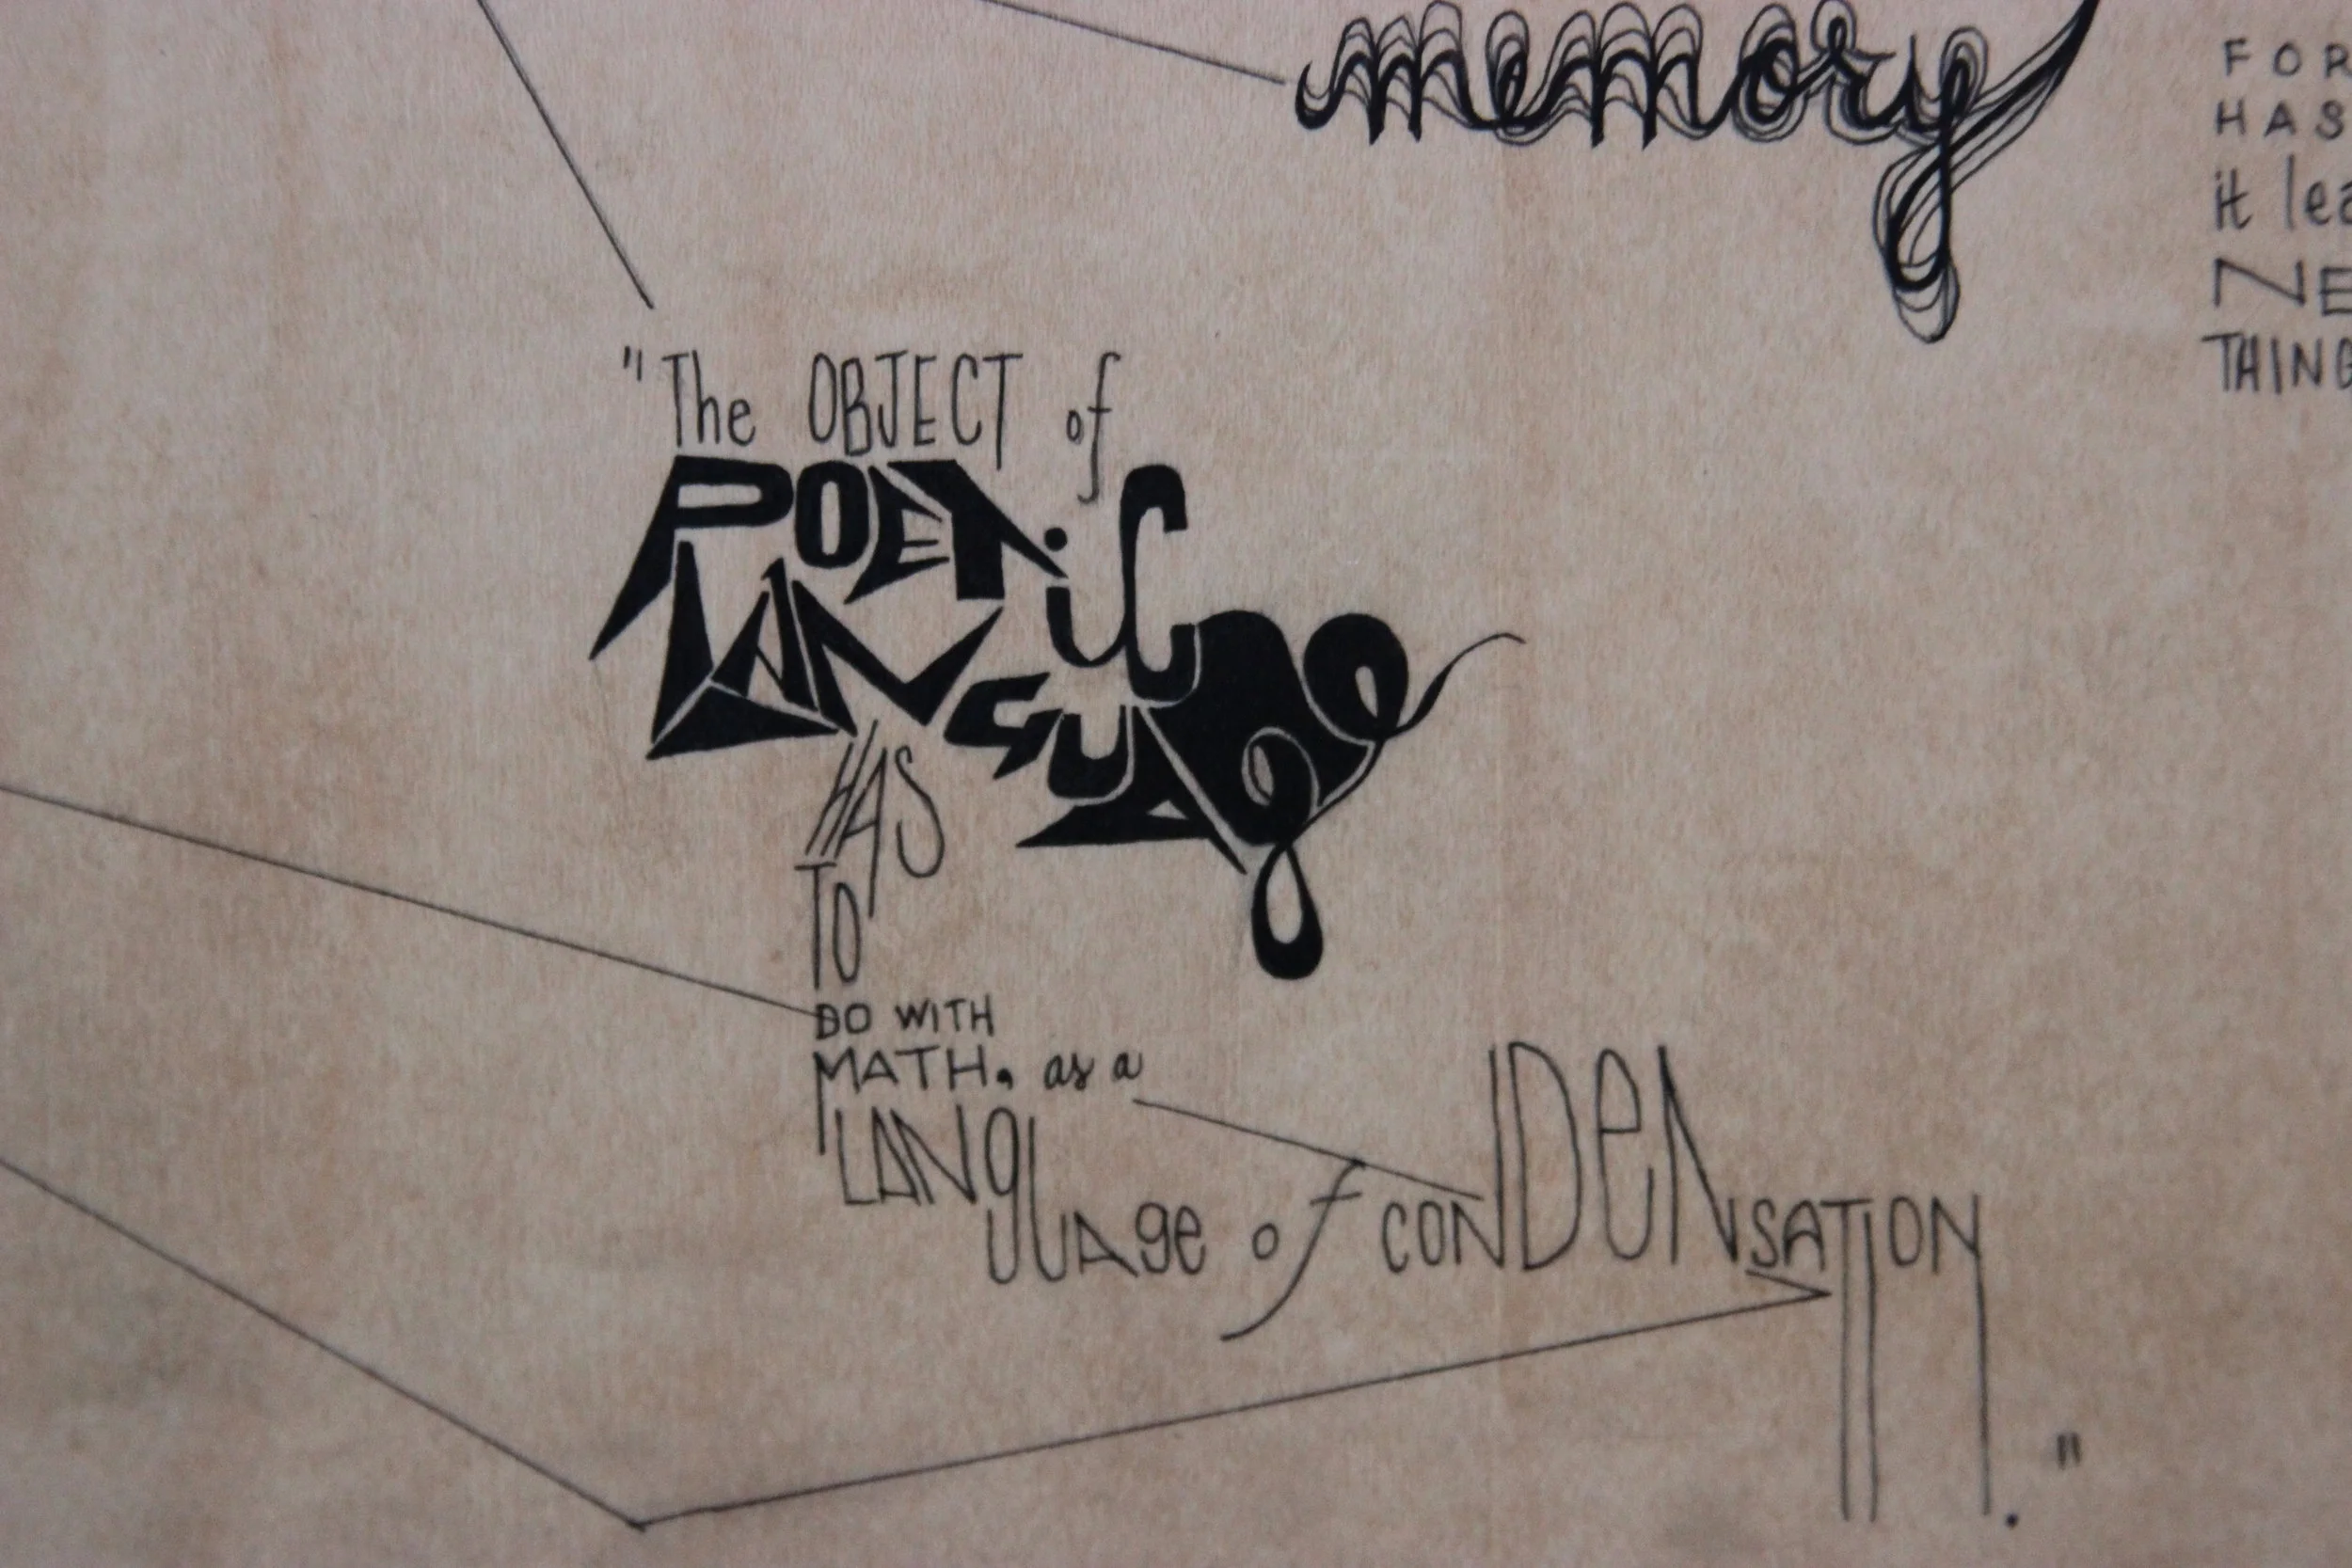 memory
FOR
HAS
it lea
NE
THING
"The OBJECT of
POETiC
LANGUAge
HAS
TO
DO WITH
MATH, as a
LANgUAge of conDeNSATION."